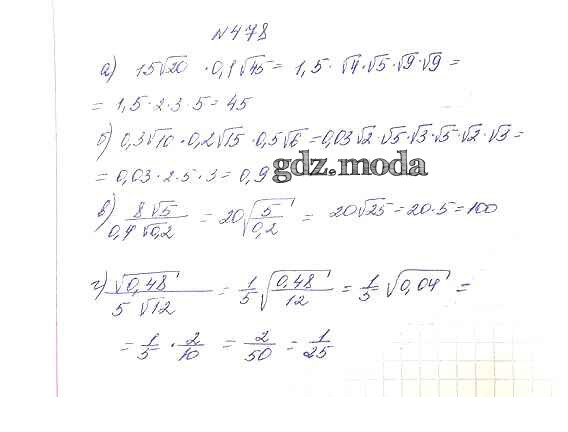 №478
а) 15√20 · 0,1√45 = 1,5 · √4·√5·√9·√9 =
= 1,5·2·3·5 = 45
б) 0,3√10 · 0,2√15 · 0,5√6 = 0,03√2·√5·√3·√5·√2·√3 =
= 0,03·2·5·3 = 0,9
gdz.moda
в) 8√5 / 0,4√0,2 = 20√(5/0,2) = 20√25 = 20·5 = 100
г) √0,48 / 5√12 = 1/5 √(0,48/12) = 1/5 √0,04 =
= 1/5 · 2/10 = 2/50 = 1/25